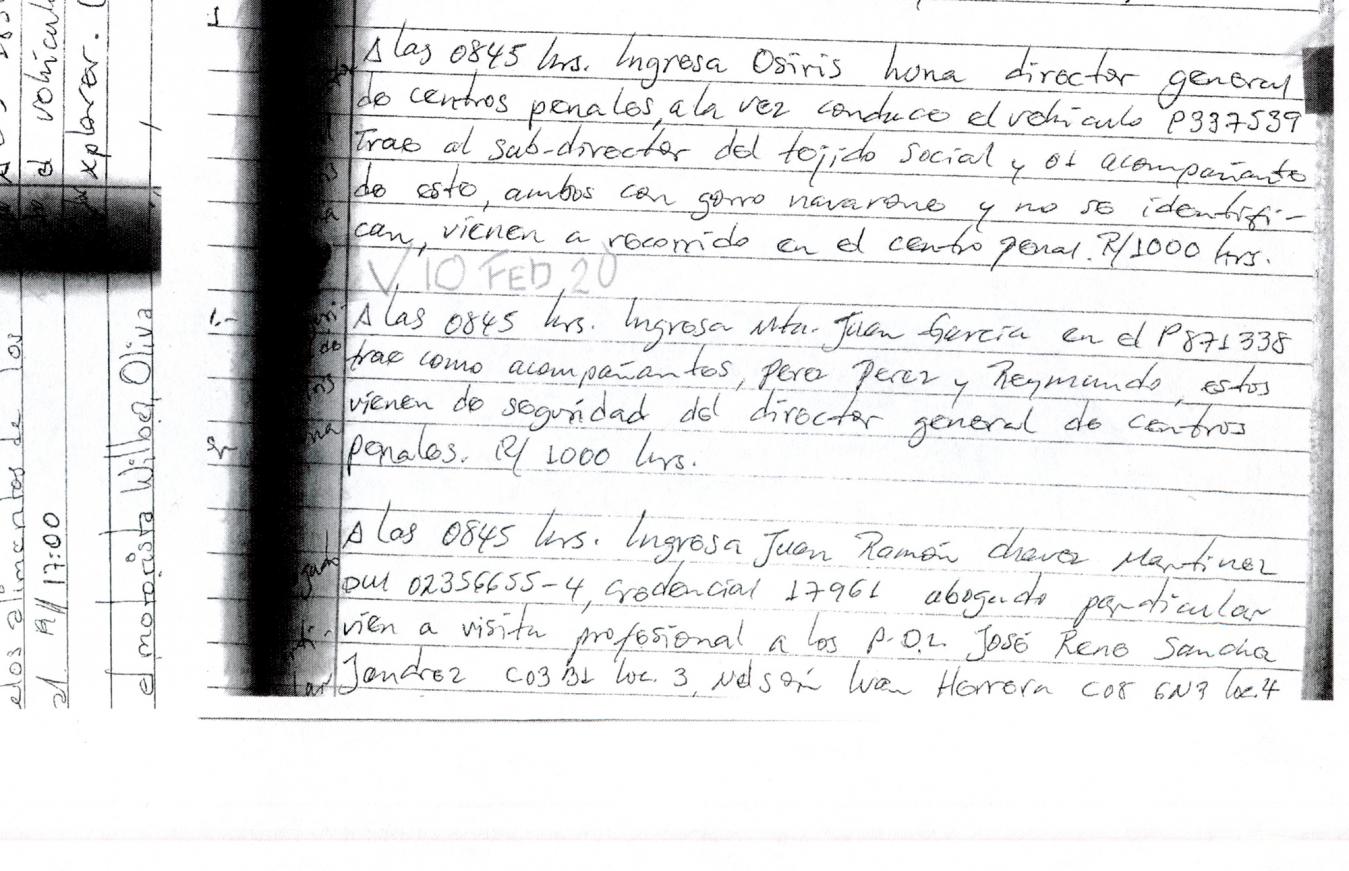 1
A las 0845 hrs. Ingresa Osiris luna director general
de centros penales, a la vez conduce el vehiculo P337539
Trae al sub-director del tejido social y 01 acompañante
de este, ambos con gorro navarone y no se identifi-
can, vienen a recorrido en el centro penal. R/1000 hrs.
V 10 FEB 20
A las 0845 hrs. Ingresa Mta. Juan Garcia en el P871338
trae como acompañantes, Perez Perez y Reymundo, estos
vienen de seguridad del director general de centros
penales. R/ 1000 hrs.
A las 0845 hrs. Ingresa Juan Ramón chavez Martinez
DUI 02356655-4, credencial 17961 abogado particular
vien a visita profesional a los P.D.L José Rene Sancha
Jandrez C03 B1 loc. 3, Nelsón Ivan Herrera C08 6N3 loc.4
el vehicul
xplorer.
elos alimentos de los
el R// 17:00
el motorista Wilber Oliva